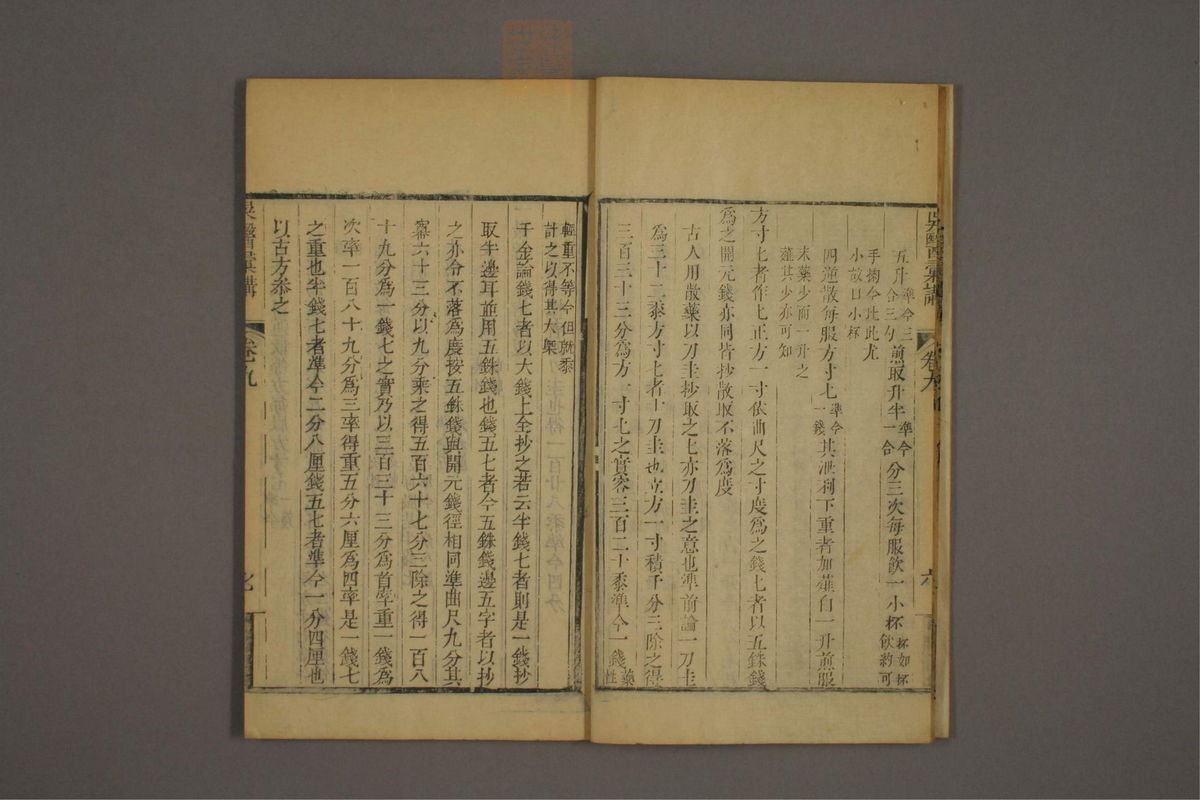 吳醫彙講 卷九 六
五升準今三合三勺煎取升半準今一合分三次每服飲一小杯杯如杯飲約可
手掬今比此尤小故曰小杯
四逆散每服方寸匕準今一錢其泄利下重者加薤白一升煎服
末藥少而一升之薤其少亦可知
方寸匕者作匕正方一寸依曲尺之寸度為之錢匕者以五銖錢
為之開元錢亦同皆抄散取不落為度
古人用散藥以刀圭抄取之匕亦刀圭之意也準前論一刀圭
為三十二黍方寸匕者十刀圭也立方一寸積千分三除之得
三百三十三分為方一寸匕之實容三百二十黍準今一錢藥性
輕重不等今但就黍計之以得其大槩
千金論錢匕者以大錢上全抄之若云半錢匕者則是一錢抄
取半邊耳並用五銖錢也錢五匕者今五銖錢邊五字者以抄
之亦令不落為度按五銖錢與開元錢徑相同準曲尺九分其
冪六十三分以九分乘之得五百六十七分三除之得一百八
十九分為一錢匕之實乃以三百三十三分為首率重一錢為
次率一百八十九分為三率得重五分六厘為四率是一錢匕
之重也半錢匕者準今二分八厘錢五匕者準今一分四厘也
以古方叅之
吳醫彙講 卷九